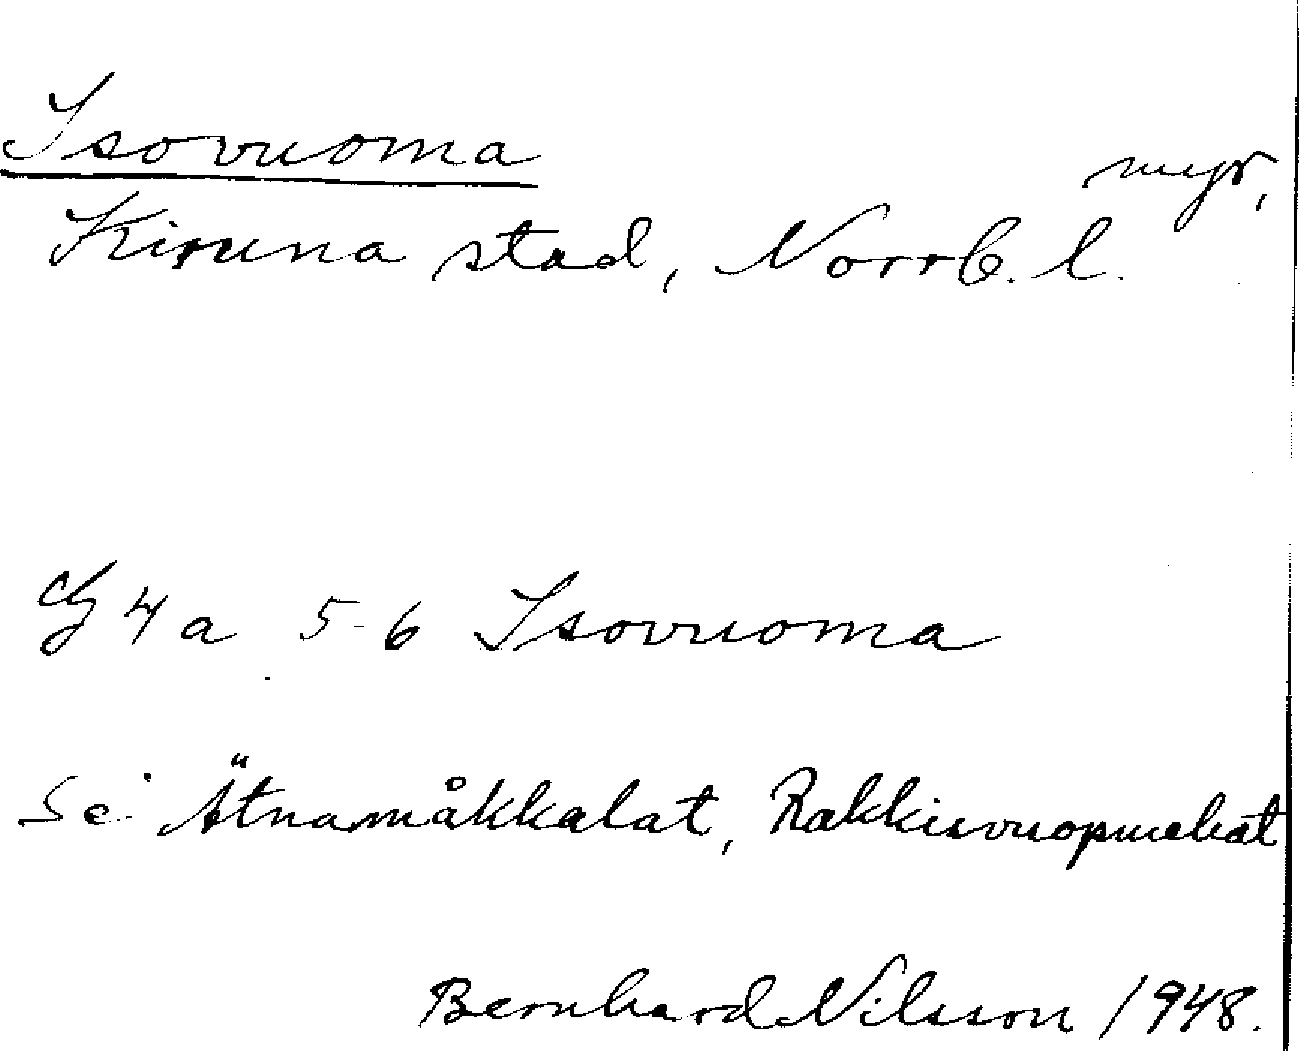 Isovuoma myr,
Kiruna stad, Norrb. l.
4 a 5-6 Isovuoma
Se: Ätnamåkkalat,
Bernhard Nilsson 1948.